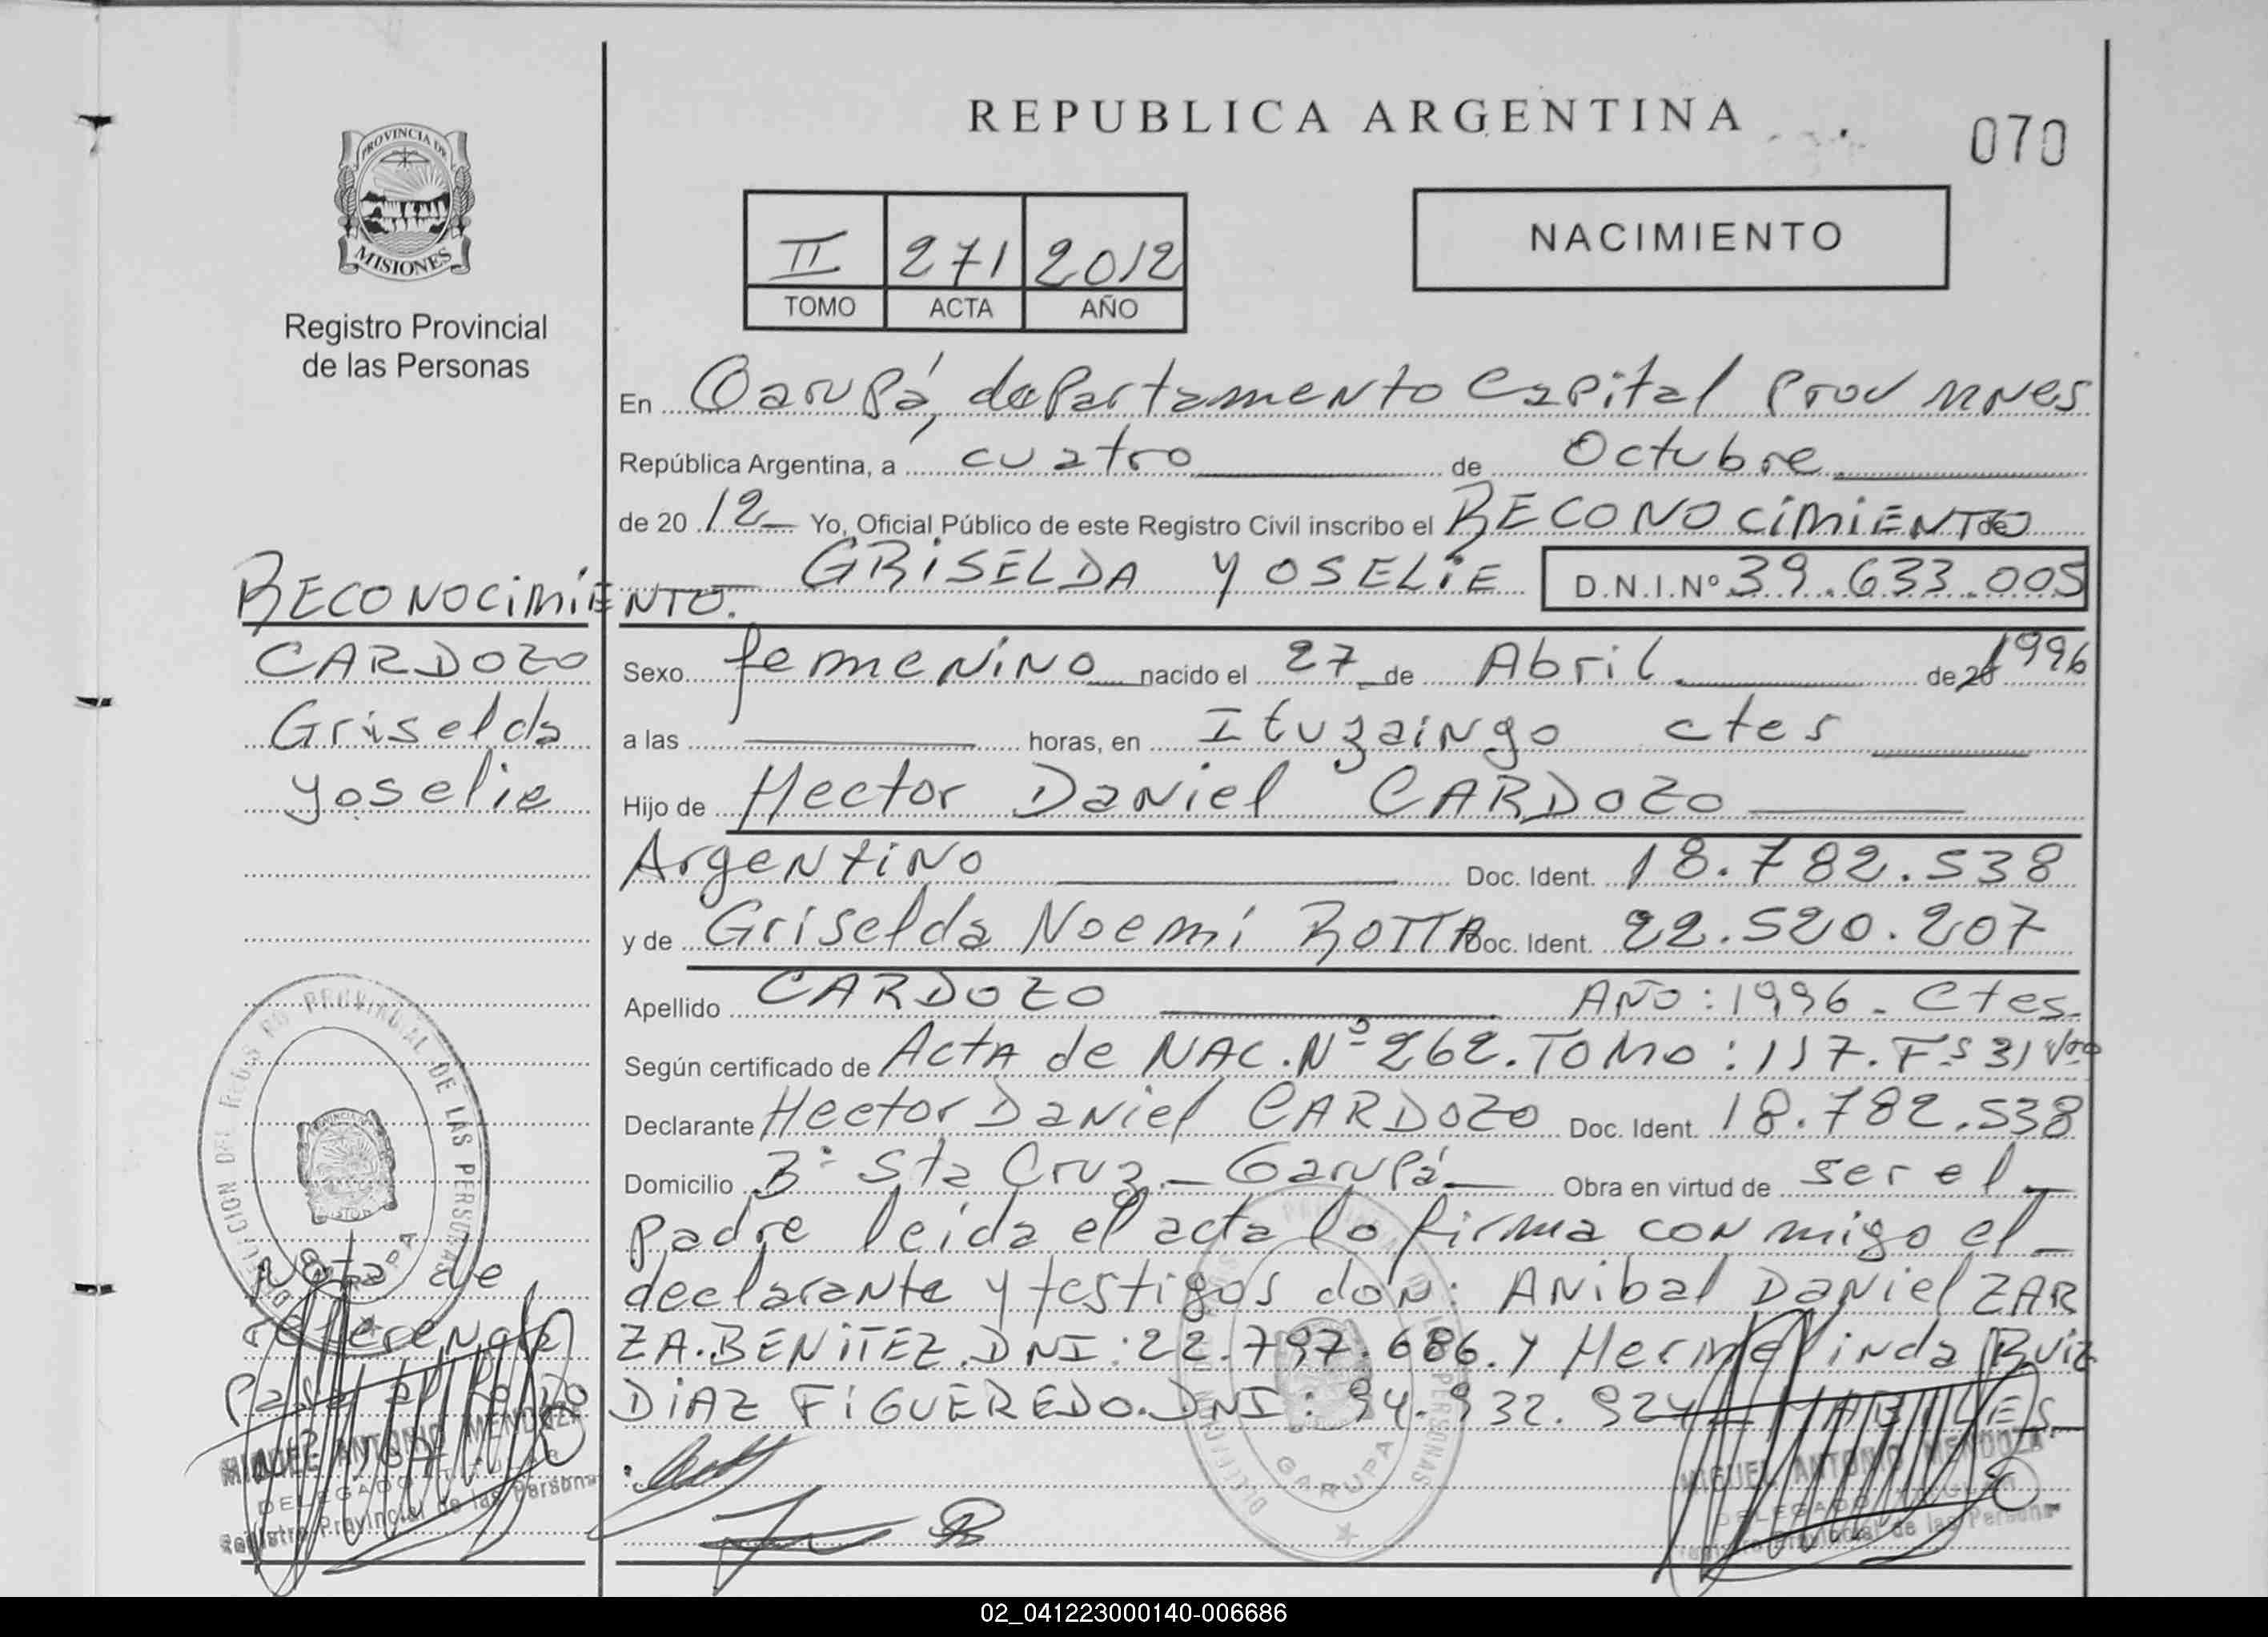 REPUBLICA ARGENTINA
070
PROVINCIA DE
MISIONES
Registro Provincial
de las Personas
II 271 2012
TOMO ACTA AÑO
NACIMIENTO
En Garupá, departamento Capital Prov Mnes
República Argentina, a cuatro de Octubre
de 2012 Yo, Oficial Público de este Registro Civil inscribo el RECONOCIMIENTO de
GRISELDA YOSELIE D.N.I.Nº 39.633.005
RECONOCIMIENTO.
CARDOZO
Griselda
Yoselie
Sexo femenino nacido el 27 de Abril de 20 1996
a las horas, en Ituzaingo ctes
Hijo de Hector Daniel CARDOZO
Argentino Doc. Ident. 18.782.538
y de Griselda Noemí ROTTA Doc. Ident. 22.520.207
Apellido CARDOZO AÑO: 1996 - Ctes.
Según certificado de Acta de NAC. Nº 262. TOMO: 117. Fs 31 Vto
Declarante Hector Daniel CARDOZO Doc. Ident. 18.782.538
Domicilio Bº Sta Cruz - Garupá Obra en virtud de ser el
padre leida el acta lo firma con migo el
declarante y testigos don: Anibal Daniel ZAR
ZA. BENITEZ. DNI: 22.797.686. y Hermelinda Ruiz
DIAZ FIGUEREDO. DNI: 94.932.924 HABILES
DELEGACION DEL REGISTRO PROVINCIAL DE LAS PERSONAS
GARUPA
Nota de
referencia
Pasa al
MIGUEL ANTONIO MENDOZA
DELEGADO TITULAR
Registro Provincial de las Personas
DELEGACION PROVINCIAL DE LAS PERSONAS
GARUPA
MIGUEL ANTONIO MENDOZA
DELEGADO TITULAR
Registro Provincial de las Personas
02_041223000140-006686